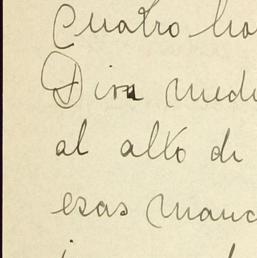 Cuatro ho
Dira medi
al alto de
esas manc